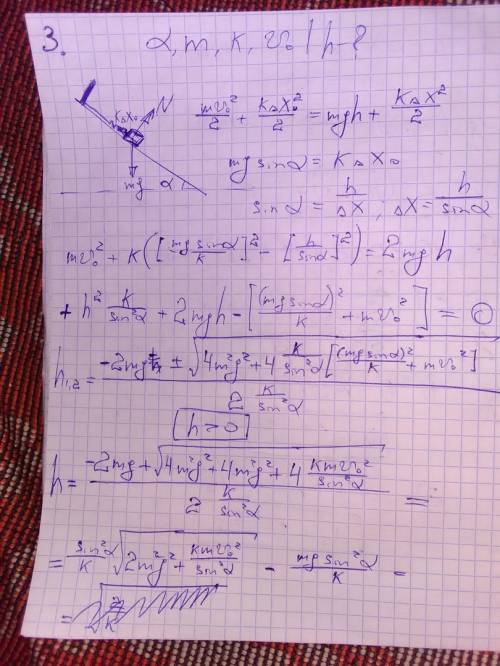 3. α, m, k, v₀ | h-?
kΔx₀ N
mg α
mv₀²/2 + kΔx₀²/2 = mgh + kΔx²/2
mg sinα = kΔx₀
sinα = h/Δx ; Δx = h/sinα
mv₀² + k([mg sinα/k]² - [h/sinα]²) = 2mgh
+ h² k/sin²α + 2mgh - [(mg sinα)²/k + mv₀²] = 0
h₁,₂ = (-2mg ± √(4m²g² + 4 k/sin²α [(mg sinα)²/k + mv₀²])) / (2 k/sin²α)
h > 0
h = (-2mg + √(4m²g² + 4m²g² + 4 kmv₀²/sin²α)) / (2 k/sin²α) =
= sin²α/k √(2m²g² + kmv₀²/sin²α) - mg sin²α/k =
=